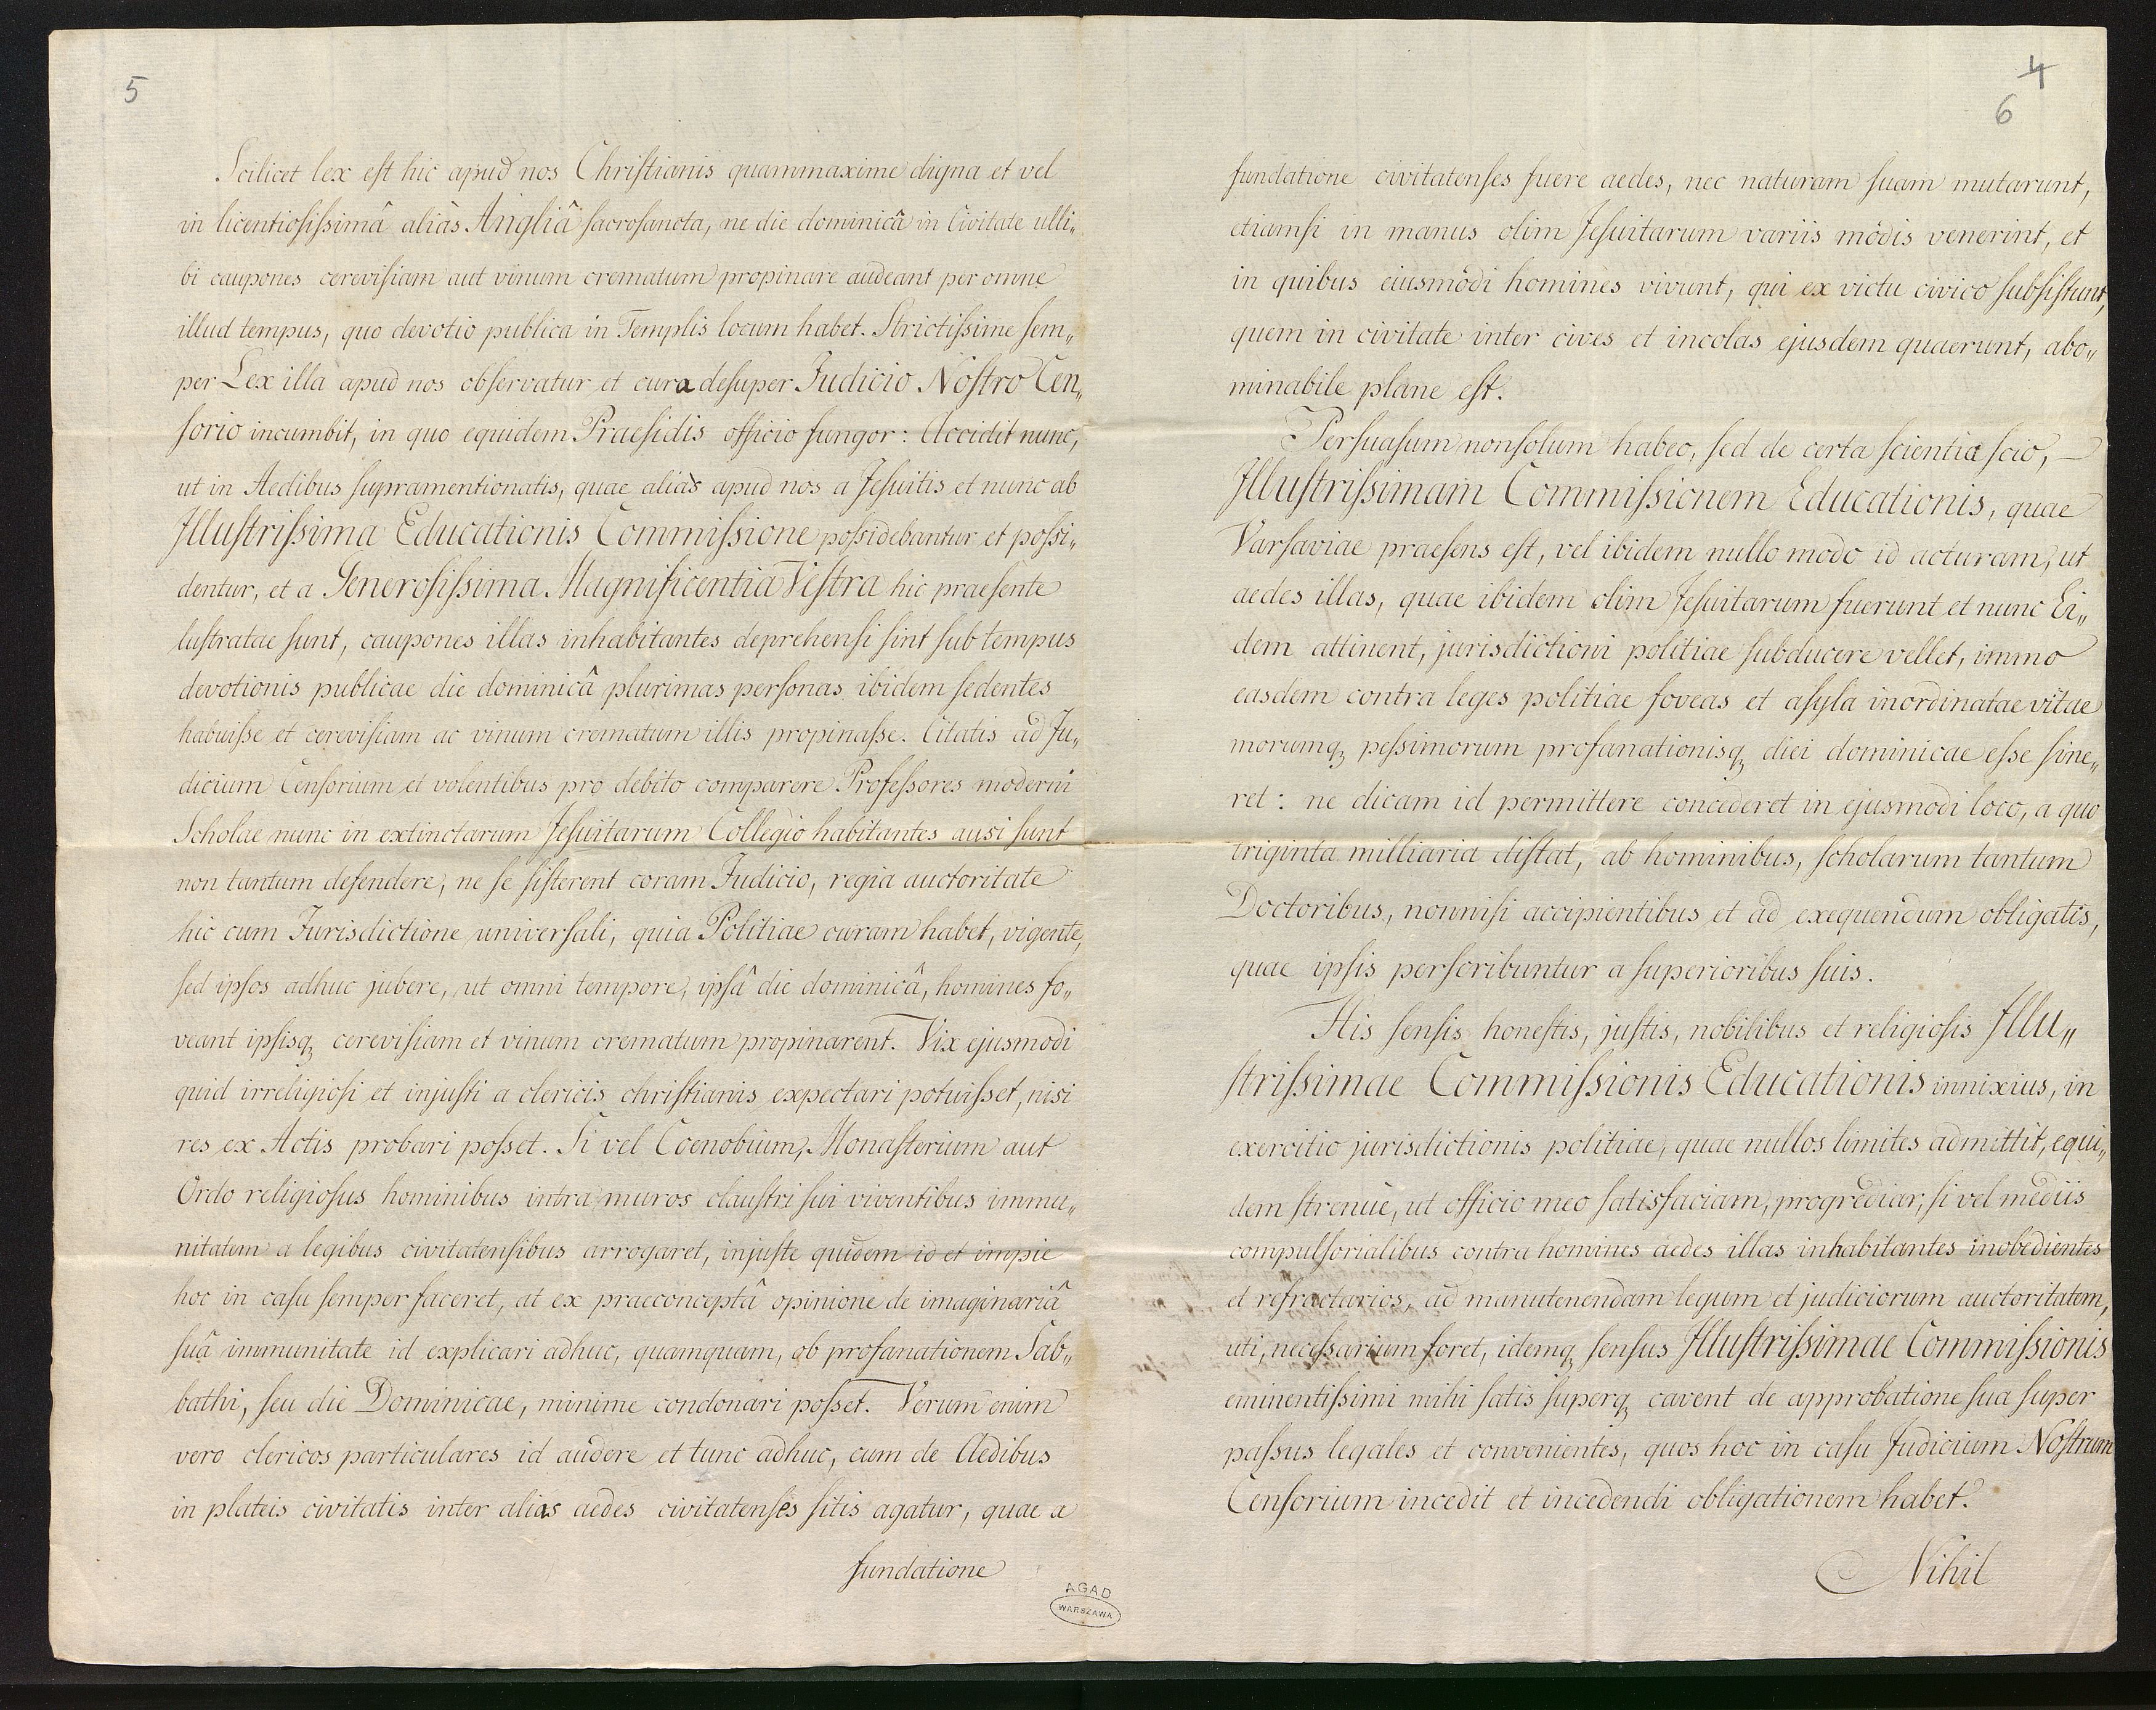 5
Scilicet lex est hic apud nos Christianis quammaxime digna et vel
in licentiosissimâ aliàs Angliâ sacrosancta, ne die dominicâ in Civitate ulli„
bi caupones cerevisiam aut vinum crematum propinare audeant per omne
illud tempus, quo devotio publica in Templis locum habet. Strictissime sem„
per Lex illa apud nos observatur et cura desuper Judicio Nostro Cen„
sorio incumbit, in quo equidem Praesidis officio fungor: Accidit nunc,
ut in Aedibus supramentionatis, quae aliàs apud nos a Jesuitis et nunc ab
Illustrissima Educationis Commissione possidebantur et possi„
dentur, et a Generosissima Magnificentia Vestra hic praesente
lustratae sunt, caupones illas inhabitantes deprehensi sint sub tempus
devotionis publicae die dominicâ plurimas personas ibidem sedentes
habuisse et cerevisiam ac vinum crematum illis propinasse. Citatis ad Ju„
dicium Censorium et volentibus pro debito comparere Professores moderni
Scholae nunc in extinctarum Jesuitarum Collegio habitantes ausi sunt
non tantum defendere, ne se sisterent coram Judicio, regia auctoritate
hic cum Jurisdictione universali, quia Politiae curam habet, vigente,
sed ipsos adhuc jubere, ut omni tempore, ipsâ die dominicâ, homines fo„
veant ipsisq; cerevisiam et vinum crematum propinarent. Vix ejusmodi
quid irreligiosi et injusti a clericis christianis expectari potuisset, nisi
res ex Actis probari posset. Si vel Coenobium, Monasterium aut
Ordo religiosus hominibus intra muros claustri sui viventibus immu„
nitatem a legibus civitatensibus arrogaret, injuste quidem id et impie
hoc in casu semper faceret, at ex praeconceptâ opinione de imaginariâ
suâ immunitate id explicari adhuc, quamquam, ob profanationem Sab„
bathi, seu die Dominicae, minime condonari posset. Verum enim
vero clericos particulares id audere et tunc adhuc, cum de Aedibus
in plateis civitatis inter alias aedes civitatenses sitis agatur, quae a
fundatione
AGAD
WARSZAWA
4
6
fundatione civitatenses fuere aedes, nec naturam suam mutarunt,
etiamsi in manus olim Jesuitarum variis modis venerint, et
in quibus eiusmodi homines vivunt, qui ex victu civico subsistunt,
quem in civitate inter cives et incolas ejusdem quaerunt, abo„
minabile plane est.
Persuasum nonsolum habeo, sed de certa scientia scio, –
Illustrissimam Commissionem Educationis, quae
Varsaviae praesens est, vel ibidem nullo modo id acturam, ut
aedes illas, quae ibidem olim Jesuitarum fuerunt et nunc Ei„
dem attinent, jurisdictioni politiae subducere vellet, immo
easdem contra leges politiae foveas et asyla inordinatae vitae
morumq; pessimorum profanationisq; diei dominicae esse sine„
ret: ne dicam id permittere concederet in ejusmodi loco, a quo
triginta milliaria distat, ab hominibus, scholarum tantum
Doctoribus, nonnisi accipientibus et ad exequendum obligatis,
quae ipsis perscribuntur a superioribus suis.
His sensis honestis, justis, nobilibus et religiosis Illu„
strissimae Commissionis Educationis innixius, in
exercitio jurisdictionis politiae, quae nullos limites admittit, equi„
dem strenue, ut officio meo satisfaciam, progrediar, si vel mediis
compulsorialibus contra homines aedes illas inhabitantes inobedientes
et refractarios, ad manutenendam legum et judiciorum auctoritatem,
uti, necessarium foret, idemq; sensus Illustrissimae Commissionis
eminentissimi mihi satis superq; cavent de approbatione sua super
passus legales et convenientes, quos hoc in casu Judicium Nostrum
Censorium incedit et incedendi obligationem habet.
Nihil